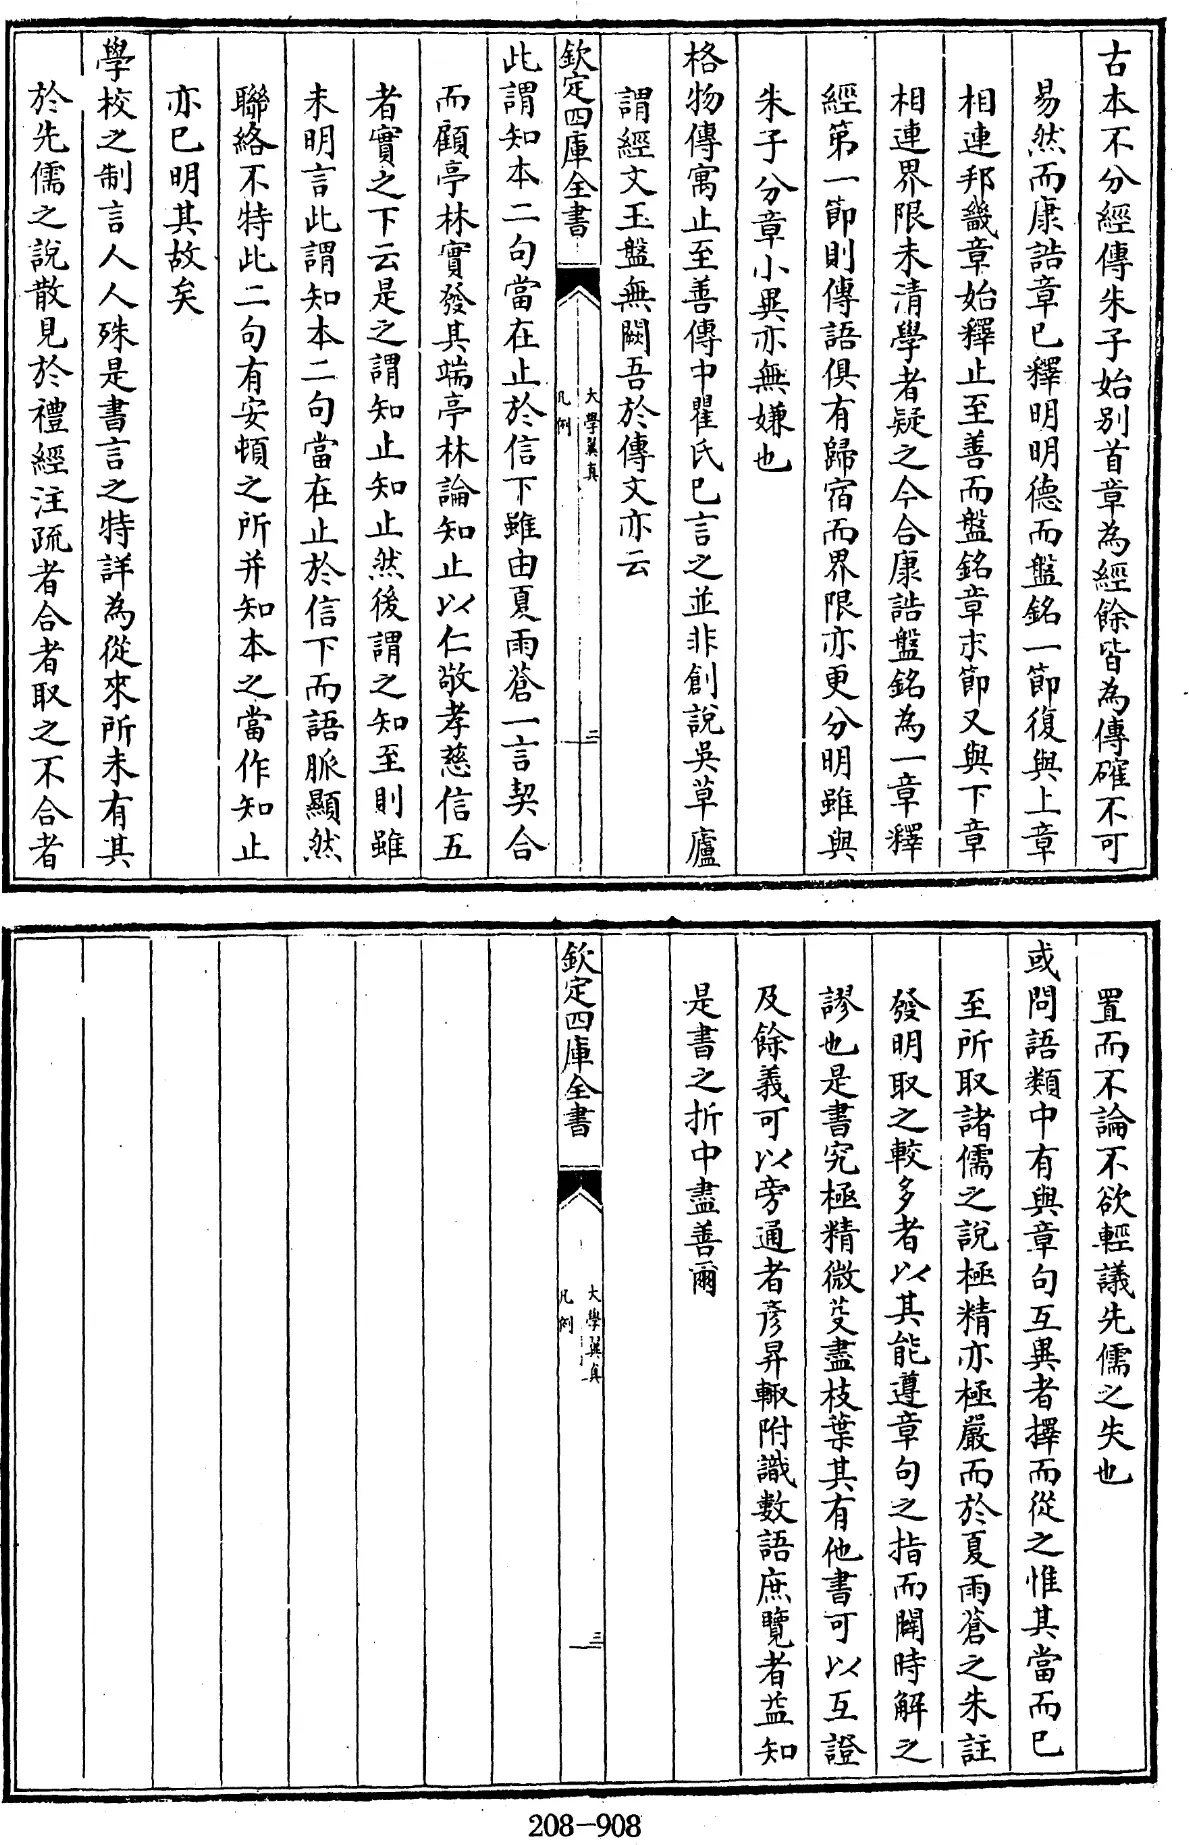 古本不分經傳朱子始别首章為經餘皆為傳確不可
易然而康誥章已釋明明德而盤銘一節復與上章
相連邦畿章始釋止至善而盤銘章末節又與下章
相連界限未清學者疑之今合康誥盤銘為一章釋
經第一節則傳語俱有歸宿而界限亦更分明雖與
朱子分章小異亦無嫌也
格物傳寓止至善傳中瞿氏已言之並非創說吳草廬
謂經文玉盤無闕吾於傳文亦云
欽定四庫全書
大學翼真
凡例
二
此謂知本二句當在止於信下雖由夏雨蒼一言契合
而顧亭林實發其端亭林論知止以仁敬孝慈信五
者實之下云是之謂知止知止然後謂之知至則雖
未明言此謂知本二句當在止於信下而語脈顯然
聯絡不特此二句有安頓之所并知本之當作知止
亦已明其故矣
學校之制言人人殊是書言之特詳為從來所未有其
於先儒之說散見於禮經注疏者合者取之不合者
置而不論不欲輕議先儒之失也
或問語類中有與章句互異者擇而從之惟其當而已
至所取諸儒之說極精亦極嚴而於夏雨蒼之朱註
發明取之較多者以其能遵章句之指而闢時解之
謬也是書究極精微芟盡枝葉其有他書可以互證
及餘義可以旁通者彥昇輙附識數語庶覽者益知
是書之折中盡善爾
欽定四庫全書
大學翼真
凡例
三
208-908